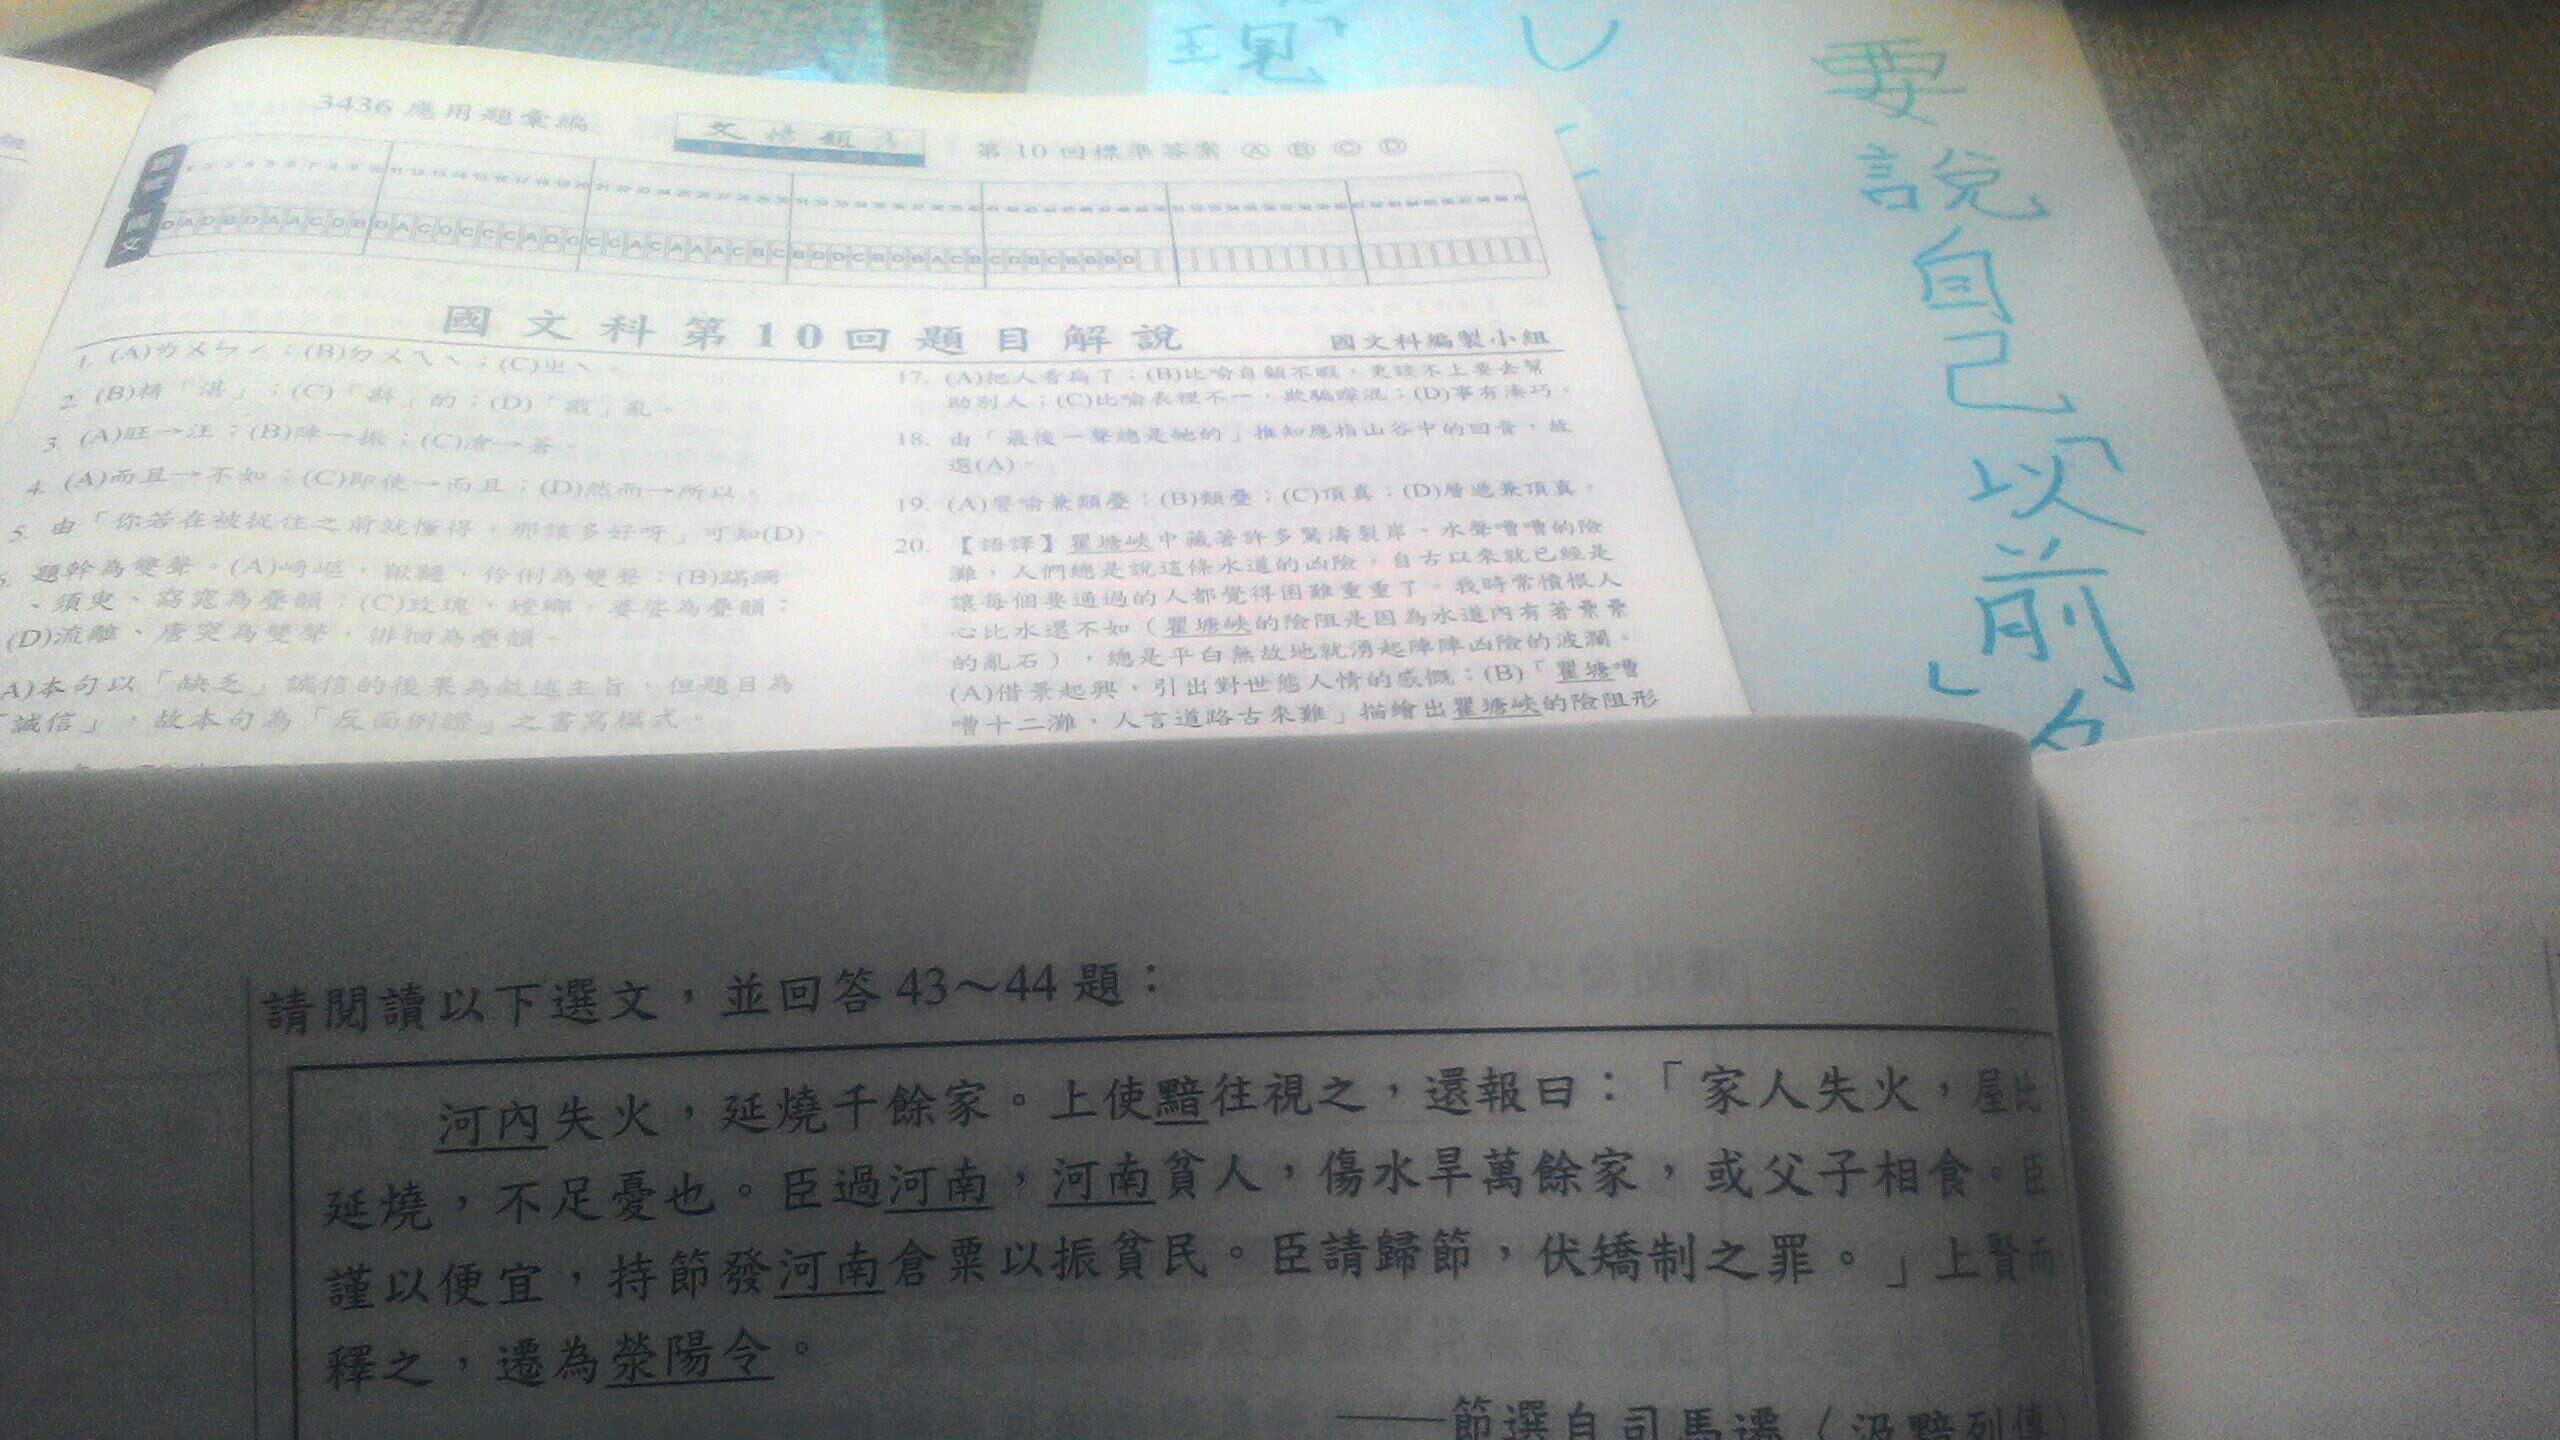 3436 應用題彙編
第 10 回標準答案 Ⓐ Ⓑ Ⓒ Ⓓ
國文科第10回題目解說
國文科編製小組
1. (A)ㄌㄨㄣˊ；(B)ㄉㄨㄟˋ；(C)ㄓˋ。
2. (B)精「湛」；(C)「斟」的；(D)「戳」亂。
3. (A)旺→汪；(B)陣→振；(C)滄→蒼。
4. (A)而且→不如；(C)即使→而且；(D)然而→所以。
5. 由「你若在被捉住之前就懂得，那該多好呀」可知(D)。
題幹為雙聲。(A)崎嶇、鞦韆、伶俐為雙聲；(B)蹣跚
、須臾、窈窕為疊韻；(C)玫瑰、螳螂、婆娑為疊韻；
(D)流離、唐突為雙聲，徘徊為疊韻。
A)本句以「缺乏」誠信的後果為敘述主旨，但題目為
「誠信」，故本句為「反面例證」之書寫模式。
17. (A)把人看扁了；(B)比喻自顧不暇，更談不上要去幫
助別人；(C)比喻表裡不一，欺騙矇混；(D)事有湊巧。
18. 由「最後一聲總是她的」推知應指山谷中的回音，故
選(A)。
19. (A)譬喻兼類疊；(B)類疊；(C)頂真；(D)層遞兼頂真。
20. 【語譯】瞿塘峽中藏著許多驚濤裂岸、水聲嘈嘈的險
灘，人們總是說這條水道的凶險，自古以來就已經是
讓每個要通過的人都覺得困難重重了。我時常憤恨人
心比水還不如（瞿塘峽的險阻是因為水道內有著纍纍
的亂石），總是平白無故地就湧起陣陣凶險的波瀾。
(A)借景起興，引出對世態人情的感慨；(B)「瞿塘嘈
嘈十二灘，人言道路古來難」描繪出瞿塘峽的險阻形
現
要說自己「以前」
請閱讀以下選文，並回答 43～44 題：
河內失火，延燒千餘家。上使黯往視之，還報曰：「家人失火，屋比
延燒，不足憂也。臣過河南，河南貧人，傷水旱萬餘家，或父子相食。臣
謹以便宜，持節發河南倉粟以振貧民。臣請歸節，伏矯制之罪。」上賢而
釋之，遷為滎陽令。
——節選自司馬遷〈汲黯列傳